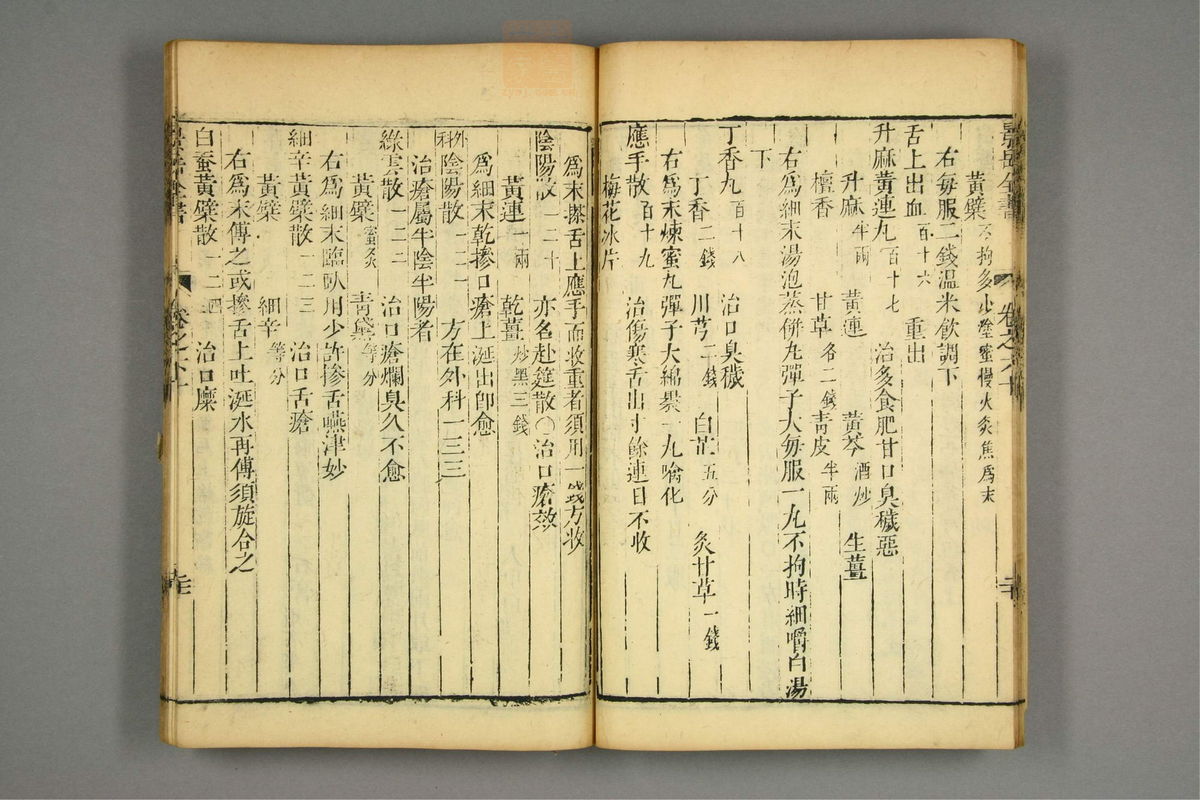 景岳全書 卷之六十
黃蘗不拘多少塗蜜慢火炙焦爲末
右每服二錢温米飲調下
舌上出血百十六 重出
升麻黃連丸百十七 治多食肥甘口臭穢惡
升麻半兩 黃連 黃芩酒炒 生薑
檀香 甘草各二錢 青皮半兩
右爲細末湯泡蒸餅丸彈子大每服一丸不拘時細嚼白湯
下
丁香丸百十八 治口臭穢
丁香二錢 川芎二錢 白芷五分 炙甘草一錢
右爲末煉蜜丸彈子大綿裹一丸噙化
應手散百十九 治傷寒舌出寸餘連日不收
梅花冰片
爲末摻舌上應手而收重者須用一錢方收
陰陽散一二十 亦名赴筵散〇治口瘡效
黃連一兩 乾薑炒黑三錢
爲細末乾摻口瘡上涎出卽愈
外科陰陽散一二一 方在外科一三三
治瘡屬半陰半陽者
綠雲散一二二 治口瘡爛臭久不愈
黃蘗蜜炙 青黛等分
右爲細末臨臥用少許摻舌嚥津妙
細辛黃蘗散一二三 治口舌瘡
黃蘗 細辛等分
右爲末傅之或摻舌上吐涎水再傅須旋合之
白蚕黃蘗散一二四 治口糜
景岳全書 卷之六十